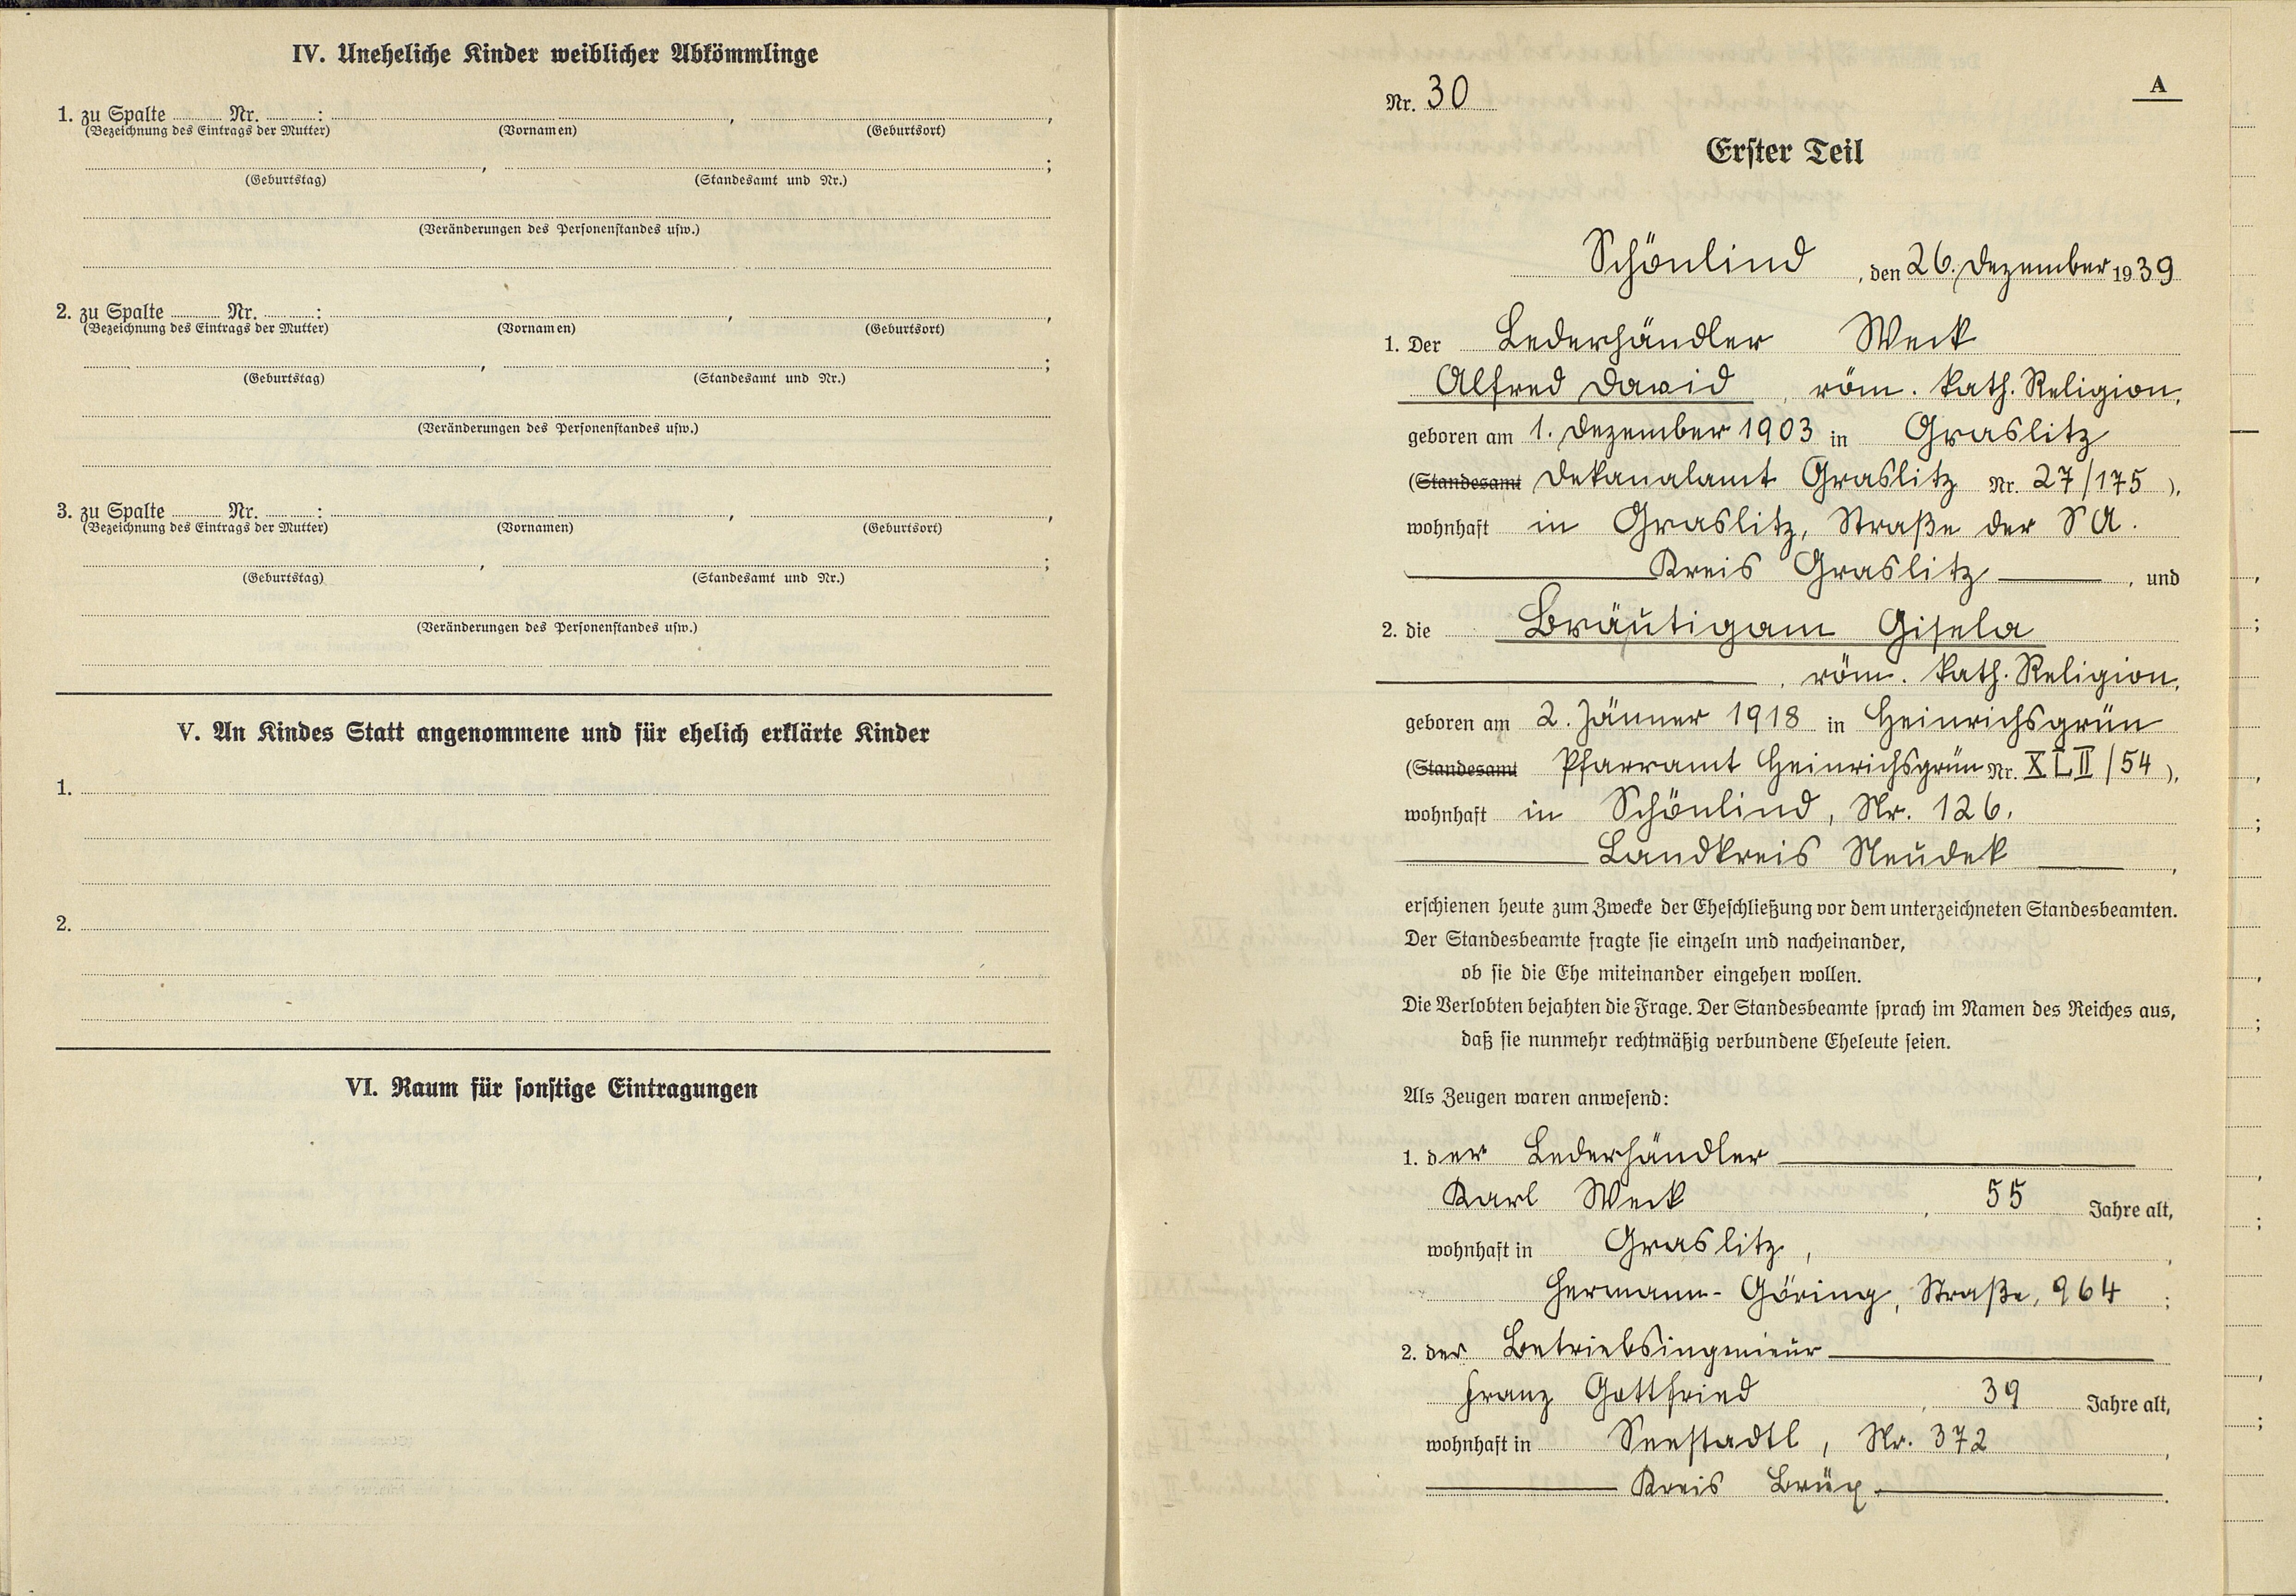 IV. Uneheliche Kinder weiblicher Abkömmlinge
1. zu Spalte ........ Nr. ........ : , ,
(Bezeichnung des Eintrags der Mutter) (Vornamen) (Geburtsort)
, ;
(Geburtstag) (Standesamt und Nr.)
(Veränderungen des Personenstandes usw.)
2. zu Spalte ........ Nr. ........ : , ,
(Bezeichnung des Eintrags der Mutter) (Vornamen) (Geburtsort)
, ;
(Geburtstag) (Standesamt und Nr.)
(Veränderungen des Personenstandes usw.)
3. zu Spalte ........ Nr. ........ : , ,
(Bezeichnung des Eintrags der Mutter) (Vornamen) (Geburtsort)
, ;
(Geburtstag) (Standesamt und Nr.)
(Veränderungen des Personenstandes usw.)
V. An Kindes Statt angenommene und für ehelich erklärte Kinder
1.
2.
VI. Raum für sonstige Eintragungen
A
Nr. 30
Erster Teil
Schönlind, den 26. Dezember 1939
1. Der Lederhändler Weck
Alfred David, röm. kath. Religion,
geboren am 1. Dezember 1903 in Graslitz
(Standesamt Dekanalamt Graslitz Nr. 27/175),
wohnhaft in Graslitz, Straße der SA.
Kreis Graslitz, und
2. die Bräutigam Gisela
, röm. kath. Religion,
geboren am 2. Jänner 1918 in Heinrichsgrün
(Standesamt Pfarramt Heinrichsgrün Nr. XLII/54),
wohnhaft in Schönlind, Nr. 126.
Landkreis Neudek,
erschienen heute zum Zwecke der Eheschließung vor dem unterzeichneten Standesbeamten.
Der Standesbeamte fragte sie einzeln und nacheinander,
ob sie die Ehe miteinander eingehen wollen.
Die Verlobten bejahten die Frage. Der Standesbeamte sprach im Namen des Reiches aus,
daß sie nunmehr rechtmäßig verbundene Eheleute seien.
Als Zeugen waren anwesend:
1. der Lederhändler
Karl Weck, 55 Jahre alt,
wohnhaft in Graslitz,
Hermann-Göring, Straße, 964;
2. der Betriebsingenieur
Franz Gottfried, 39 Jahre alt,
wohnhaft in Seestadtl, Nr. 372,
Kreis Brüx.